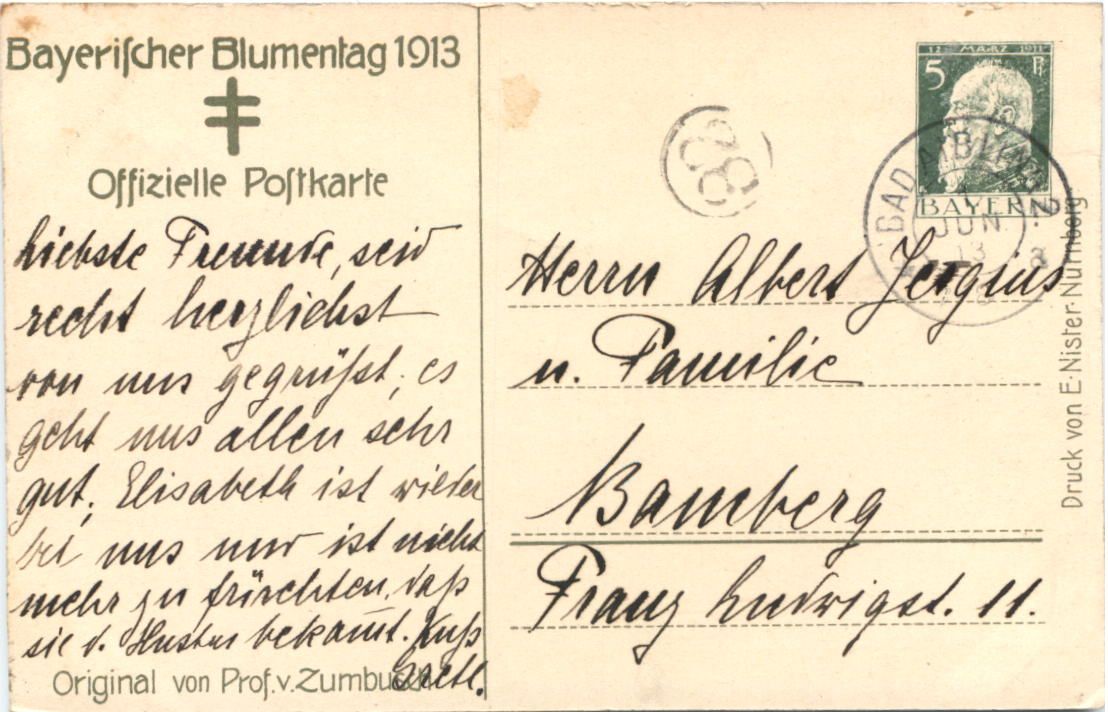 Bayerischer Blumentag 1913
Offizielle Postkarte
Liebste Freunde, seid
recht herzlichst
von uns gegrüßt, es
geht uns allen sehr
gut, Elisabeth ist wieder
bei uns und ist nicht
mehr zu fürchten, daß
sie d. Husten bekomt. Kuß
Gretl.
Original von Prof. v. Zumbusch
12 MÄRZ 1911
5 Pf
BAYERN
BAD AIBLING
JUN.
13
88
Herrn Albert Jergius
u. Familie
Bamberg
Franz Ludwigst. 11.
Druck von E. Nister. Nürnberg.